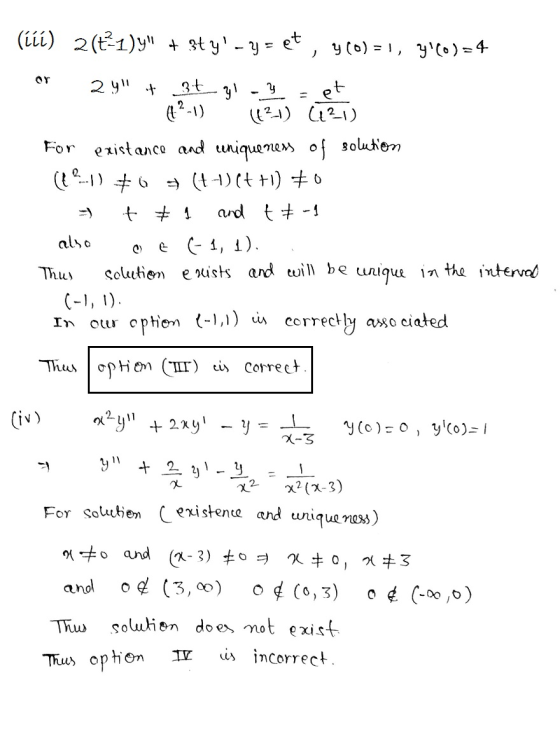 (iii) 2(t²-1)y'' + 3ty' - y = e^t , y(0)=1, y'(0)=4
or 2y'' + 3t/(t²-1) y' - y/(t²-1) = e^t/(t²-1)
For existance and uniqueness of solution
(t²-1) ≠ 0 ⇒ (t-1)(t+1) ≠ 0
⇒ t ≠ 1 and t ≠ -1
also 0 ∈ (-1, 1).
Thus solution exists and will be unique in the interval
(-1, 1).
In our option (-1,1) is correctly associated
Thus option (III) is correct.
(iv) x²y'' + 2xy' - y = 1/(x-3) y(0)=0, y'(0)=1
⇒ y'' + 2/x y' - y/x² = 1/(x²(x-3))
For solution (existence and uniqueness)
x ≠ 0 and (x-3) ≠ 0 ⇒ x ≠ 0, x ≠ 3
and 0 ∉ (3, ∞) 0 ∉ (0,3) 0 ∉ (-∞,0)
Thus solution does not exist.
Thus option IV is incorrect.